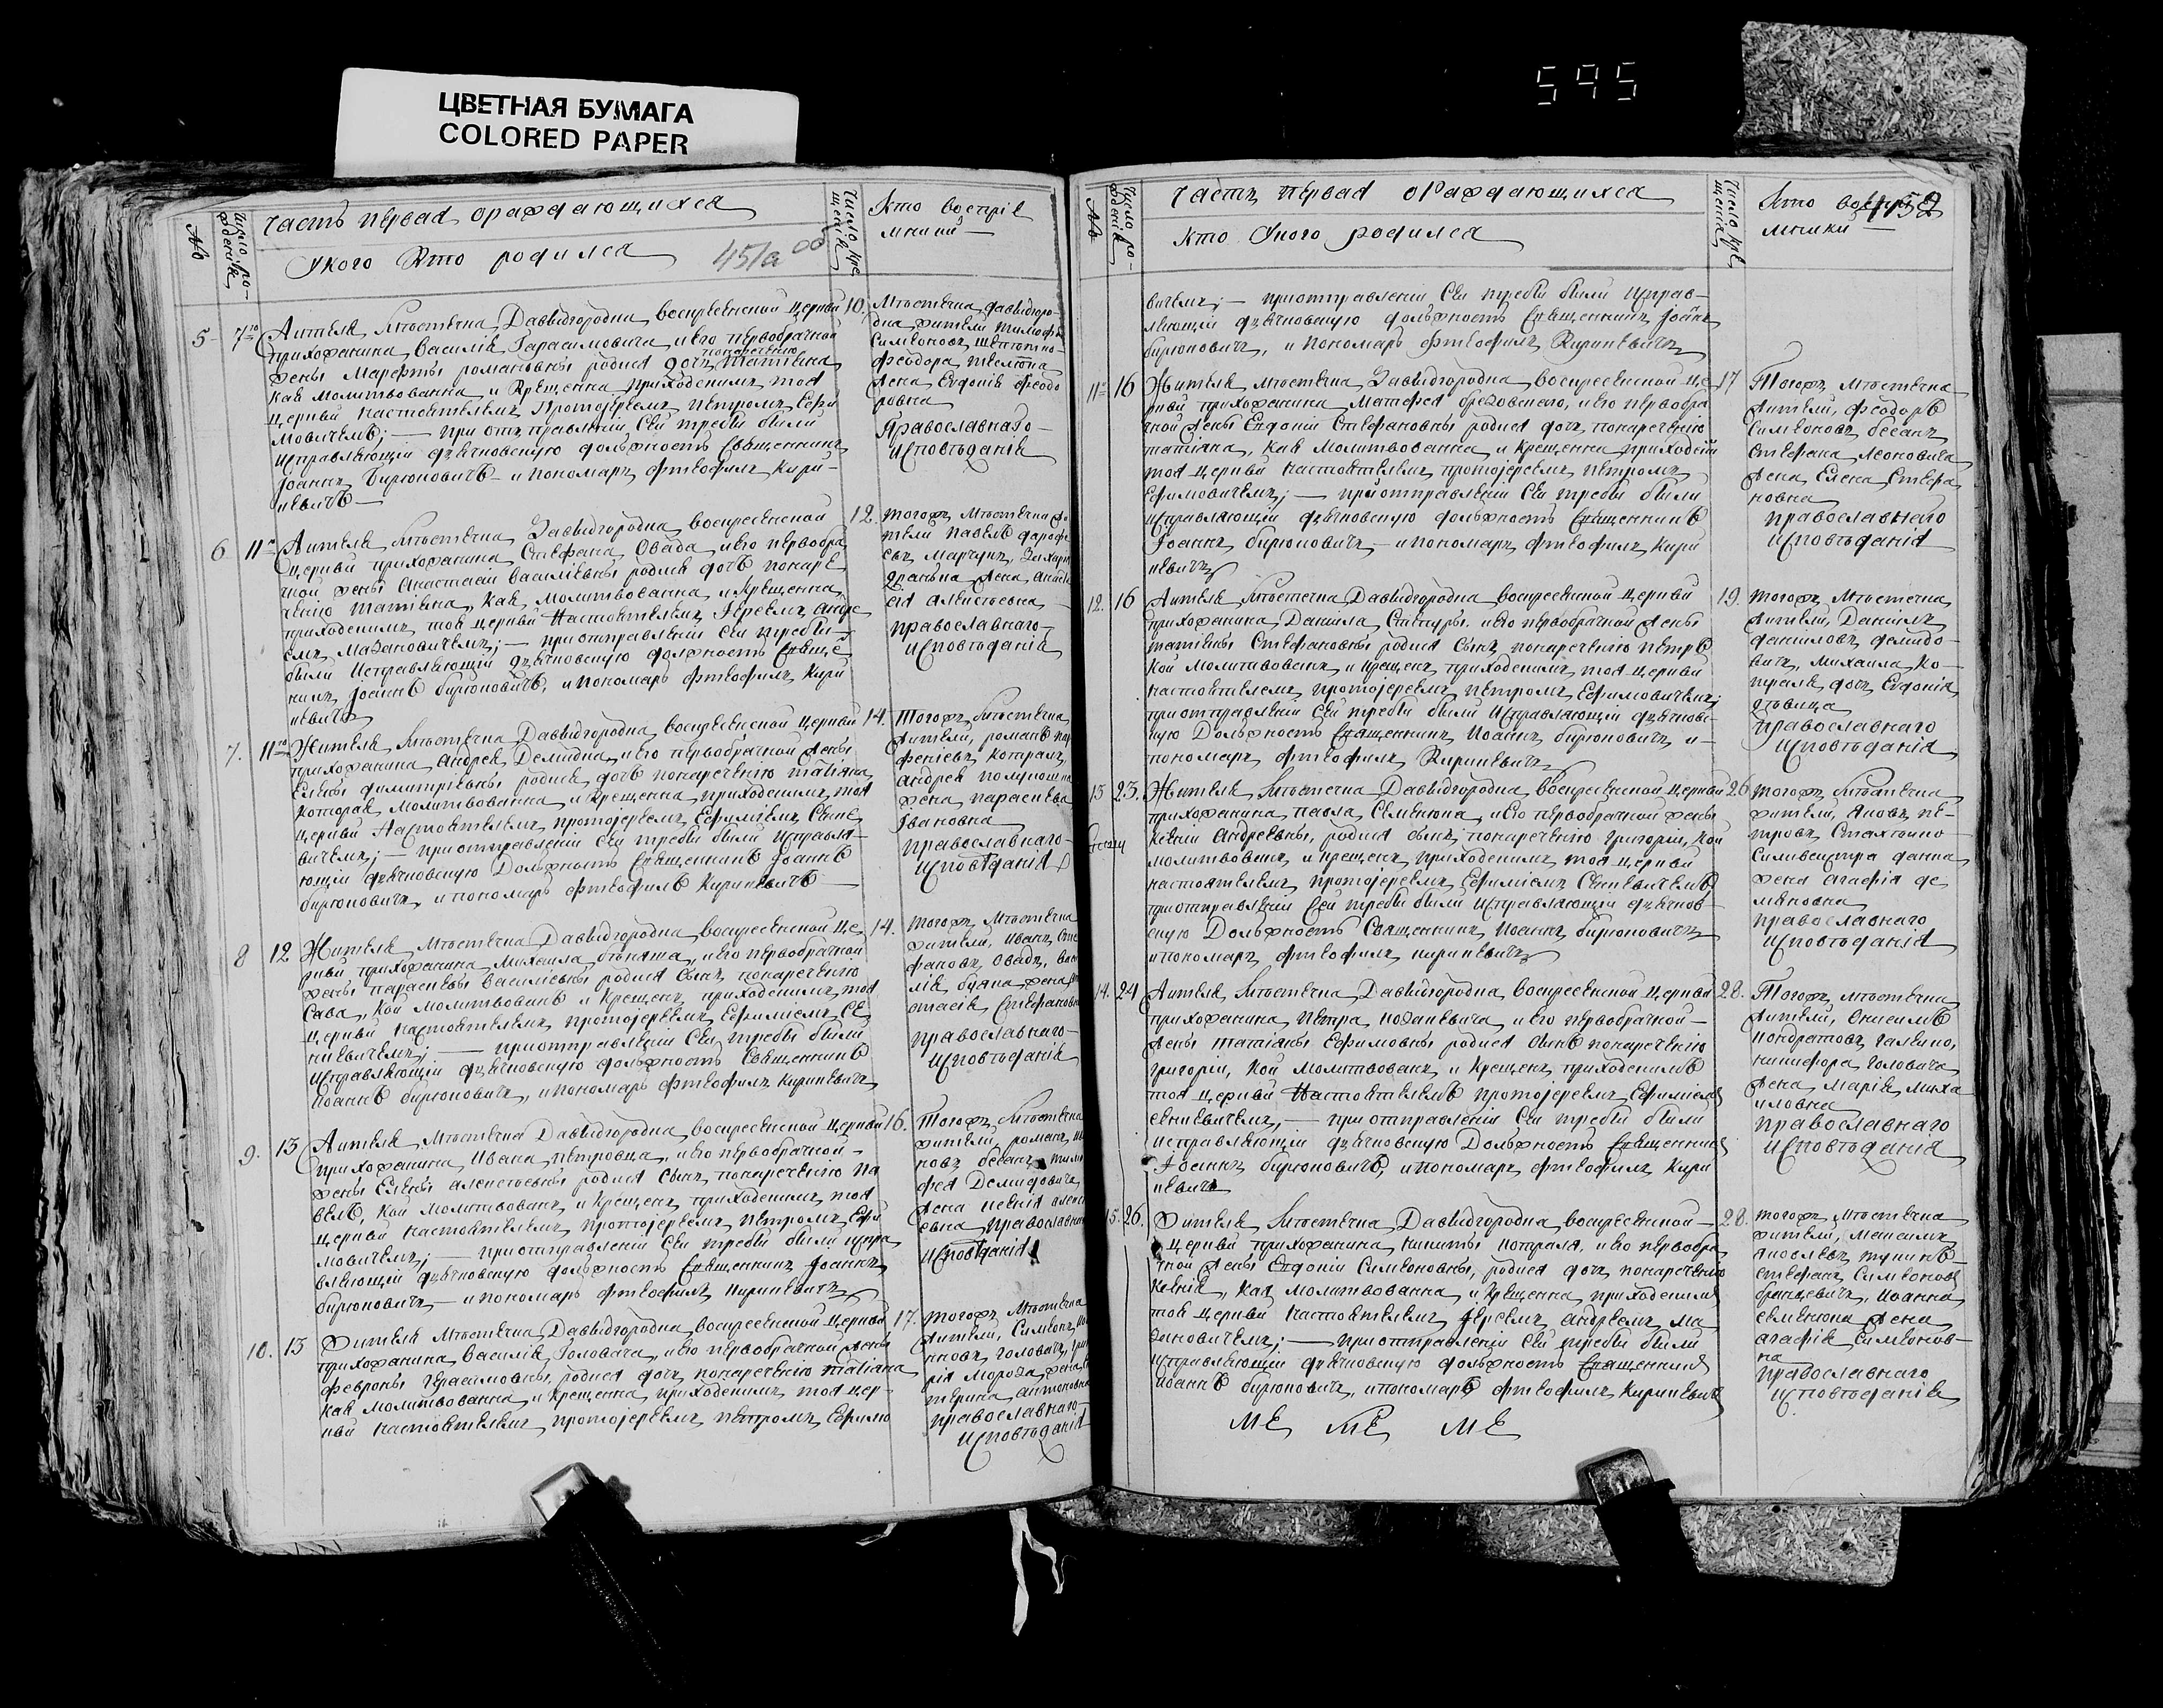 ЦВЕТНАЯ БУМАГА
COLORED PAPER
595
часть первая орождающихся
Число крещенія
Кто воспріемники
№
Число рожденія
Укого Кто родился
451а об
5
7го
Житель Мѣстечка Давидгородка воскресенской церкви
10.
прихожанина Василія Гарасимовича, и его первобрачной
жены Марѳты романовны родися дочь понаречению Татіяна
Кая Молитвованна и Крещенна приходскимъ тоя
церкви Настоятелемъ Протоіереемъ Петромъ Ефи
мовичемъ; — при отправленіи Сей требы были
Исправляющій дьячковскую должность Священникъ
Іоаннъ Бирюковичъ и пономарь Ѳтеофилъ Кири-
кевичъ
Мѣстечка Давидгоро-
дка жители тимофей
Симеоновъ
Феодора
Жена Евдокія Феодо
ровна
Православнаго
Исповѣданія
6
11го
Житель Мѣстечка Давидгородка воскресенской
12.
церкви прихожанина Стефана Овада и его первобра
чной жены Анастасіи Василіевны родися дочь понаре
ченію Татіяна, Кая Молитвованна и Крещенна
приходскимъ тоя церкви Настоятелемъ Іереемъ Андре
емъ Мазановичемъ; — при отправленіи сей требы
были Исправляющій дьячковскую должность Свяще
никъ Іоаннъ бирюковичъ, и пономарь Ѳтеофилъ Кири
кевичъ
тогожъ Мѣстечка жи
тели Павелъ дорофе
евъ Марчукъ, Захарія
жена Анаста
сія Алексѣевна
православнаго
Исповѣданія
7.
11го
Житель Мѣстечка Давидгородка воскресенской церкви
14.
прихожанина Андрея Демидка, и его первобрачной жены
Елены димитріевны родися дочь понаречению татіяна
Которая Молитвованна и Крещенна приходскимъ тоя
церкви Настоятелемъ протоіереемъ Ефиміемъ Сѣнке
вичемъ; — при отправленіи Сей требы были исправля-
ющій дьячковскую Должность Священникъ Іоаннъ
бирюковичъ, и пономарь Ѳтеофилъ Кирикевичъ
Тогожъ Мѣстечка
жители, романъ пар
феніевъ Котраль,
Андрея полуношка
жена параскева
Івановна
православнаго
исповѣданія
8
12
Житель Мѣстечка Давидгородка воскресенской це
14.
ркви прихожанина Михаила, и его первобрачной
жены параскевы Василіевны родися Сынъ, понаречению
Сава, Кой молитвованъ и Крещенъ приходскимъ тоя
церкви Настоятелемъ протоіереемъ Ефиміемъ Сѣ
нкевичемъ; — при отправленіи Сей требы были
Исправляющій дьячковскую должность Священникъ
Иоаннъ бирюковичъ, и пономарь Ѳтеофилъ Кирикевичъ
тогожъ Мѣстечка
жители, Иванъ Сте
фановъ Овадъ, Васи
лія жена
Стефановна
православнаго
Исповѣданія
9.
13
Житель Мѣстечка Давидгородка воскресенской церкви
16.
прихожанина Ивана петровца, и его первобрачной
жены Елены алексѣевны родися Сынъ понаречению па
велъ, Кой молитвованъ и Крещенъ приходскимъ тоя
церкви настоятелемъ протоіереемъ петромъ Ефи
мовичемъ; — при отправленіи Сей требы были испра
вляющій дьячковскую должность Священникъ Іоаннъ
бирюковичъ — и пономарь Ѳтеофилъ Кирикевичъ
Тогожъ Мѣстечка
жители романъ
новъ бесанъ, тимо
фея Демидовича
жена ксенія алексѣ
евна православнаго
исповѣданія
10.
13
Житель Мѣстечка Давидгородка воскресенской церкви
17.
прихожанина Василія Головача, и его первобрачной жены
февроны Герасимовны родися дочь понаречению татіяна
Кая молитвованна и Крещенна приходскимъ тоя цер-
кви настоятелемъ протоіереемъ петромъ Ефимо
тогожъ Мѣстечка
жители, Симеонъ
новъ головачъ,
рія Мороза жена
терина антоновна
православнаго
исповѣданія
часть первая ораждающихся
Число крещенія
Кто воспріе
мники
452
№
Число рожденія
Кто Укого родился
вичемъ; — при отправленіи Сей требы были исправ-
ляющій дьячковскую должность Священникъ Іоаннъ
бирюковичъ, и пономарь Ѳтеофилъ Кирикевичъ
11
16
Житель Мѣстечка Давидгородка воскресенской це
17
ркви прихожанина Матфея, и его первобра
чной жены Евдокіи Стефановны родися дочь понаречению
татіяна, Кая Молитвованна и Крещенна приходским
тоя церкви настоятелемъ протоіереемъ петромъ
Ефимовичемъ; — при отправленіи Сей требы были
исправляющій дьячковскую должность Священникъ
Іоаннъ бирюковичъ, — и пономарь Ѳтеофилъ Кири
кевичъ
Тогожъ Мѣстечка
жители, Феодоръ
Симеоновъ бесанъ
Стефана Леоновича
жена Елена Стефа
новна
православнаго
Исповѣданія
12.
16
Житель Мѣстечка Давидгородка воскресенской церкви
19.
прихожанина Данила, и его первобрачной жены
татіяны Стефановны родися Сынъ понаречению петръ
Кой Молитвованъ и Крещенъ приходскимъ тоя церкви
настоятелемъ протоіереемъ петромъ Ефимовичемъ;
при отправленіи Сей требы были Исправляющій дьячковс-
кую Должность Священникъ Иоаннъ бирюковичъ и
пономарь Ѳтеофилъ Кирикевичъ
тогожъ Мѣстечка
жители, Даніилъ
даниловъ демидо-
вичъ, Михаила Ко-
траля дочь Евдокія
дѣвица
православнаго
исповѣданія
13
23.
Житель Мѣстечка Давидгородка воскресенской церкви
26
прихожанина павла Семенюка, и его первобрачной жены
Ксеніи Андреевны, родися сынъ понаречению григорій, Кой
молитвованъ и крещенъ приходскимъ тоя церкви
настоятелемъ протоіереемъ Ефиміемъ Сѣнкевичемъ
при отправленіи Сей требы были исправляющій дьячков-
скую Должность Священникъ Иоаннъ бирюковичъ
и пономарь Ѳтеофилъ кирикевичъ
тогожъ Мѣстечка
жители, Яковъ пе-
тровъ
Силивестра
жена агафія де
мяновна
православнаго
исповѣданія
14.
24
Житель Мѣстечка Давидгородка воскресенской церкви
28.
прихожанина Петра, и его первобрачной
жены татіаны Ефимовны родися сынъ понаречению
григорій, Кой Молитвованъ и Крещенъ приходскимъ
тоя церкви Настоятелемъ протоіереемъ Ефиміемъ
сѣнкевичемъ, — при отправленіи Сей требы были
исправляющій дьячковскую Должность Священникъ
Іоаннъ бирюковичъ, и пономарь Ѳтеофилъ Кири
кевичъ
Тогожъ Мѣстечка
жители, Онисимъ
кондратовъ
никифора головача
жена Марія Миха
иловна
православнаго
исповѣданія
15.
26.
Житель Мѣстечка Давидгородка воскресенской
28.
церкви прихожанина никиты котраля, и его первобра
чной жены Евдокіи Симеоновны, родися дочь понаречению
Ксенія, Кая молитвованна и Крещенна приходскимъ
тоя церкви настоятелемъ Іереемъ андреемъ ма
зановичемъ; — при отправленіи Сей требы были
исправляющій дьячковскую должность Священникъ
иоаннъ бирюковичъ, и пономарь Ѳтеофилъ Кирикевичъ
тогожъ Мѣстечка
жители, Максимъ
стефанъ Симеоновъ
Иоанна
семенюка жена
агафія Симеонов-
на
православнаго
исповѣданія